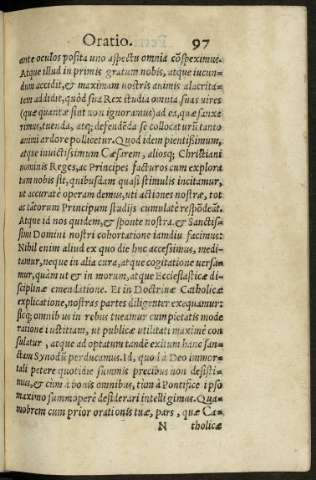 Oratio. 97
ante oculos posita uno aspectu omnia cõspeximus.
Atque illud in primis gratum nobis, atque iucun-
dum accidit, & maximam nostris animis alacrita-
tem addidit, quòd sua Rex studia omnia suas vires
(quæ quantæ sint non ignoramus) ad ea, quæ sanxe
rimus, tuenda, atq; defendẽda se collocaturũ tanto
animi ardore pollicetur. Quod idem pientißimum,
atque inuictissimum Cæsarem, aliosq; Christiani
nominis Reges, ac Principes facturos cum explora
tum nobis sit, quibusdam quasi stimulis incitamur,
ut accuratè operam demus, uti actiones nostræ, tot
ac tãtorum Principum studijs cumulatè respõdeãt.
Atque id nos quidem, & sponte nostra, & Sanctis-
simi Domini nostri cohortatione iamdiu facimus:
Nihil enim aliud ex quo die huc accessimus, medi-
tamur, neque in alia cura, atque cogitatione versa-
mur, quàm ut & in morum, atque Ecclesiasticæ di-
sciplinæ emendatione. Et in Doctrinæ Catholicæ
explicatione, nostras partes diligenter exequamur:
sicq; omnibus in rebus tueamur cum pietatis mode
ratione iustitiam, ut publicæ utilitati maximè con-
sulatur, atque ad optatum tandẽ exitum hanc san-
ctam Synodũ perducamus. Id, quod à Deo immor-
tali petere quotidie summis precibus non desisti-
mus, & cùm à bonis omnibus, tum à Pontifice ipso
maximo summoperè desiderari intelligimus. Qua-
mobrem cum prior orationis tuæ, pars, quæ Ca-
N tholicæ